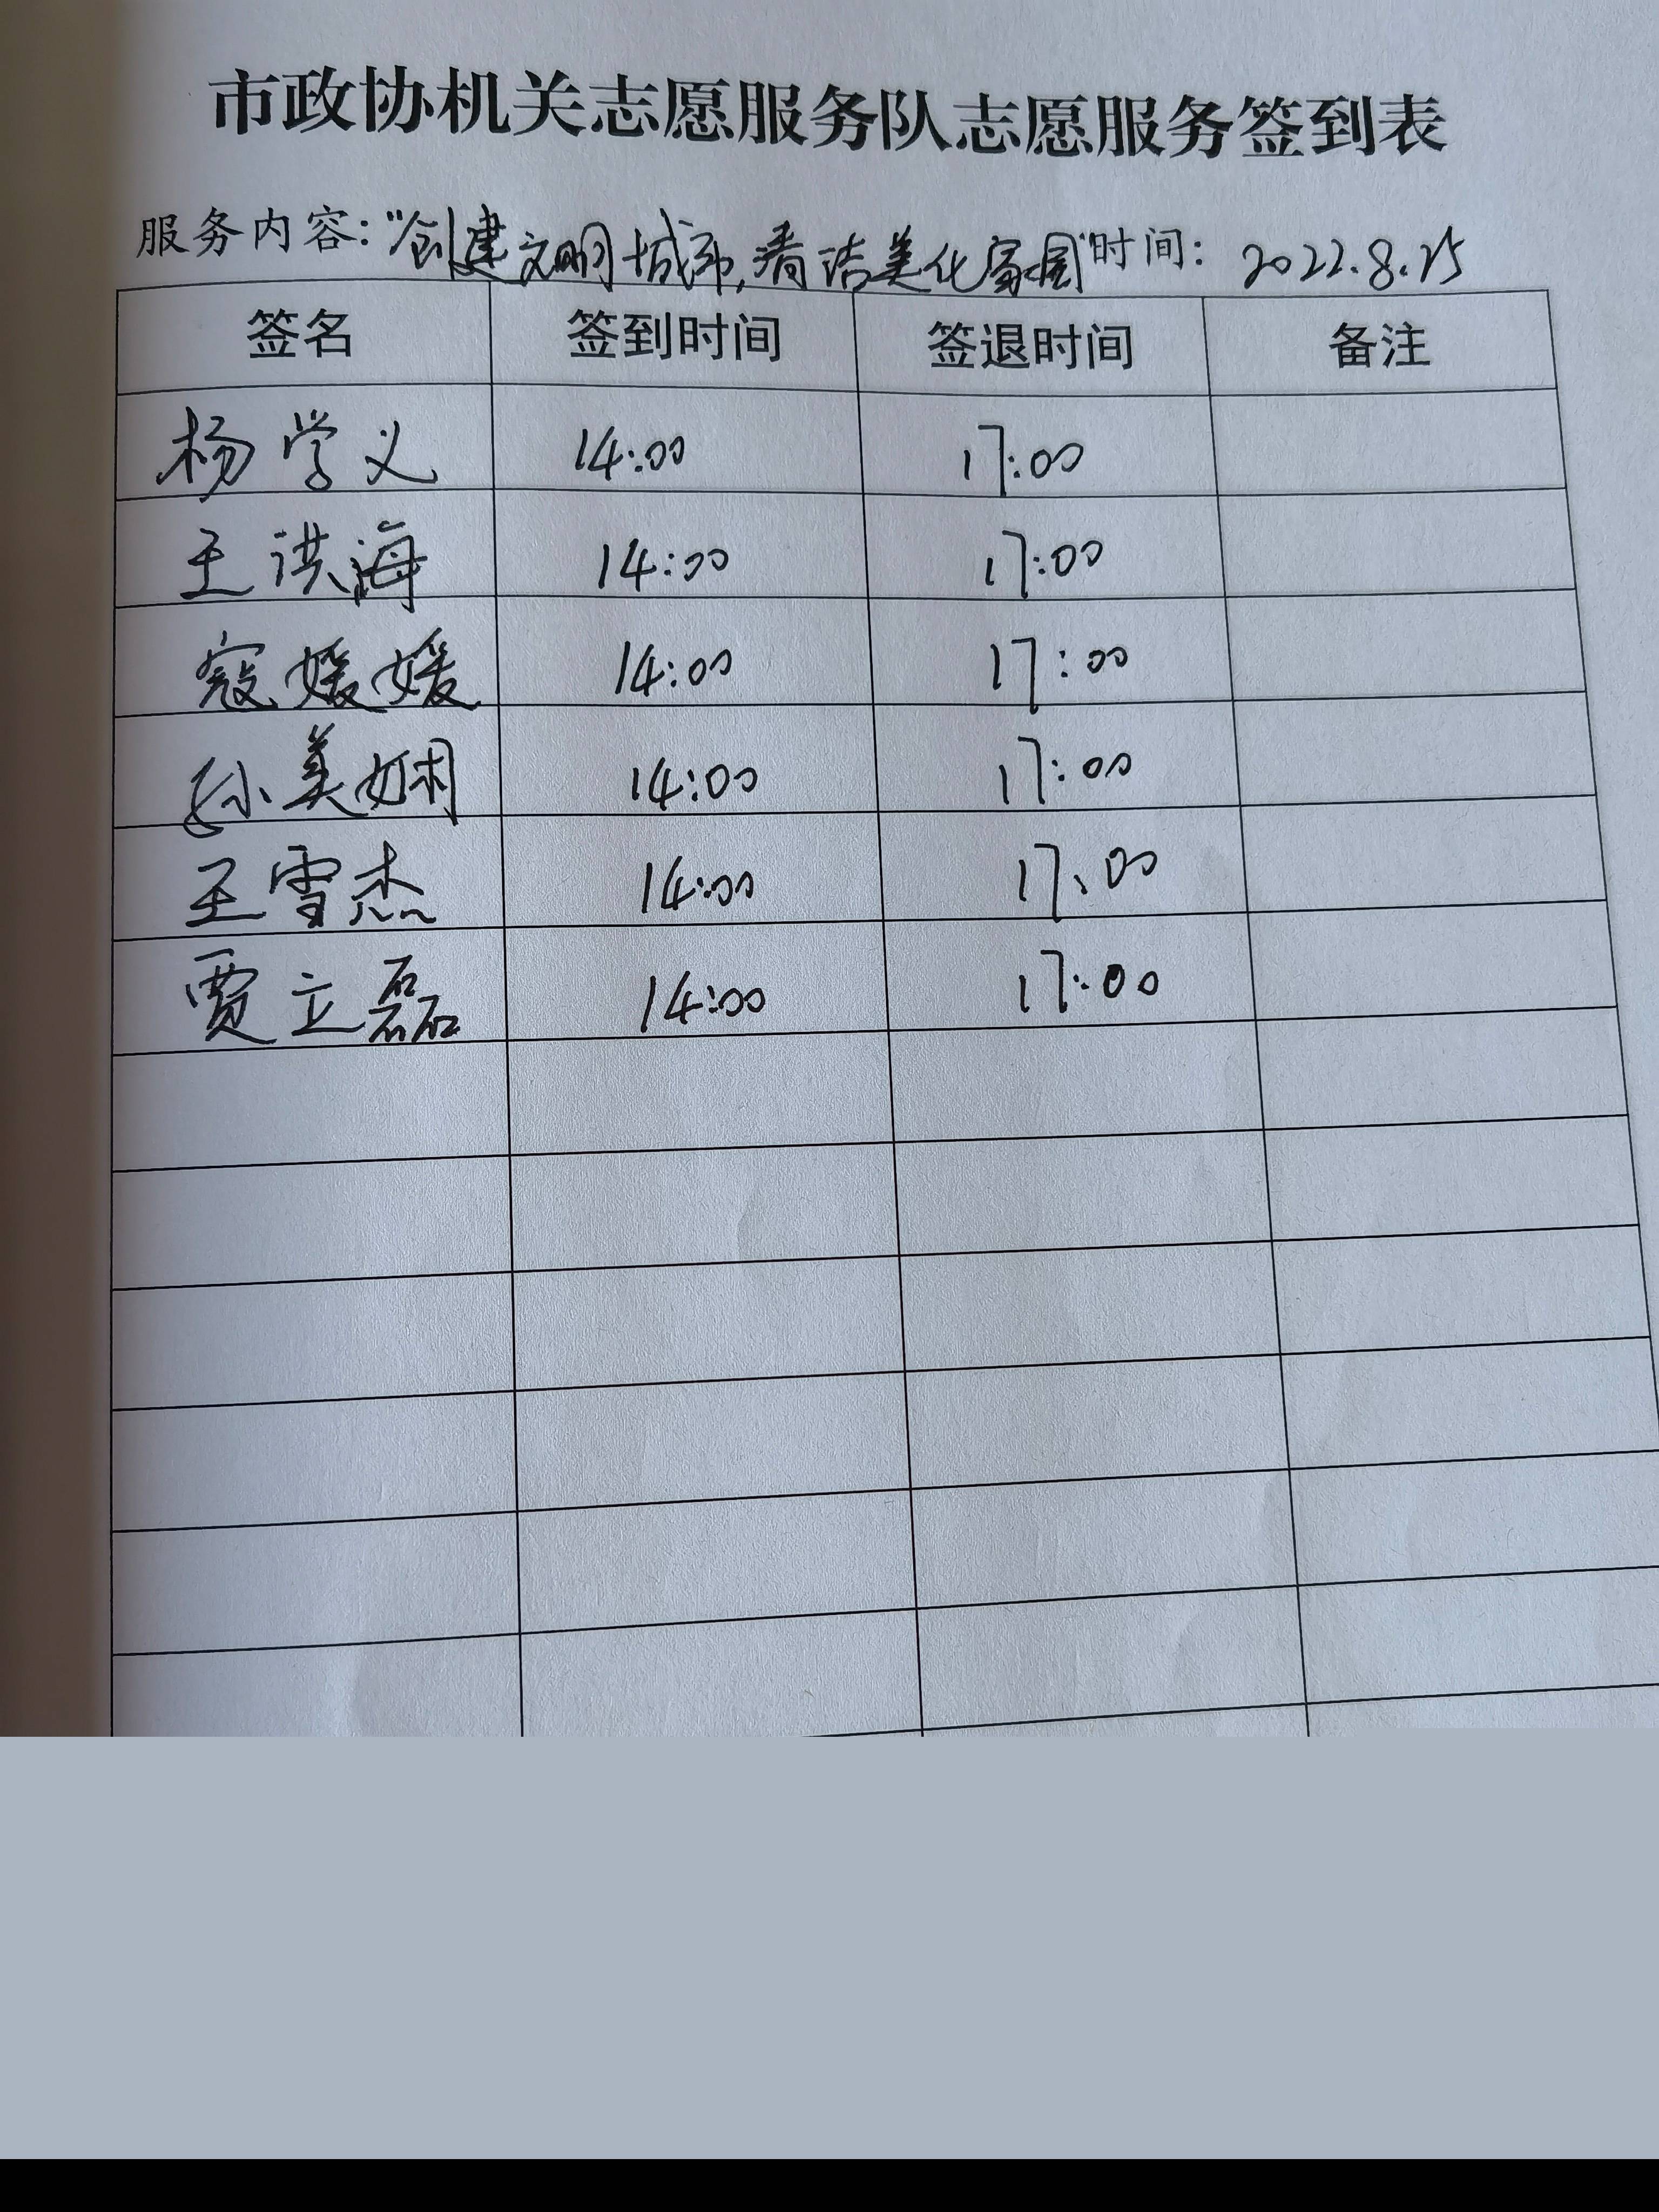 市政协机关志愿服务队志愿服务签到表
服务内容："创建文明城市，清洁美化家园"时间：2022.8.25
签名 签到时间 签退时间 备注
杨学义 14:00 17:00
王洪海 14:00 17:00
寇媛媛 14:00 17:00
孙美娴 14:00 17:00
王雪杰 14:00 17:00
贾立磊 14:00 17:00